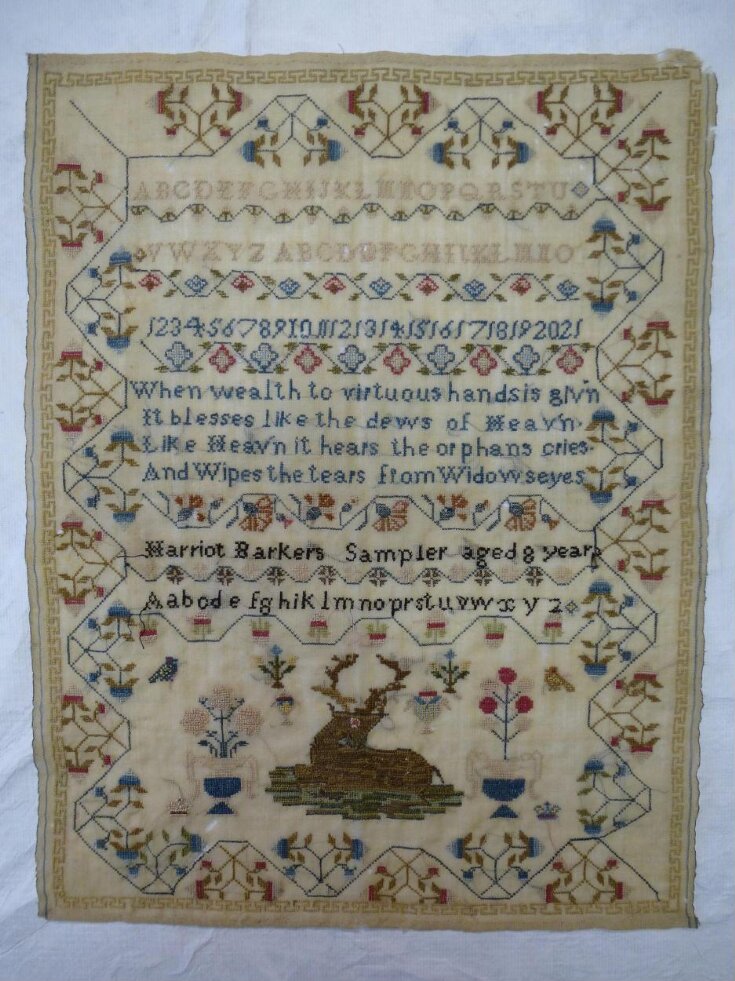 ABCDEFGHIJKLMNOPQRSTU
VWXYZ ABCDEFGHIJKLMNO
123456789101112131415161718192021
When wealth to virtuous hands is giv'n
It blesses like the dews of Heav'n.
Like Heav'n it hears the orphans cries.
And Wipes the tears from Widows eyes
Harriot Barkers Sampler aged 8 years
Aabcdefghiklmnoprstuvwxyz